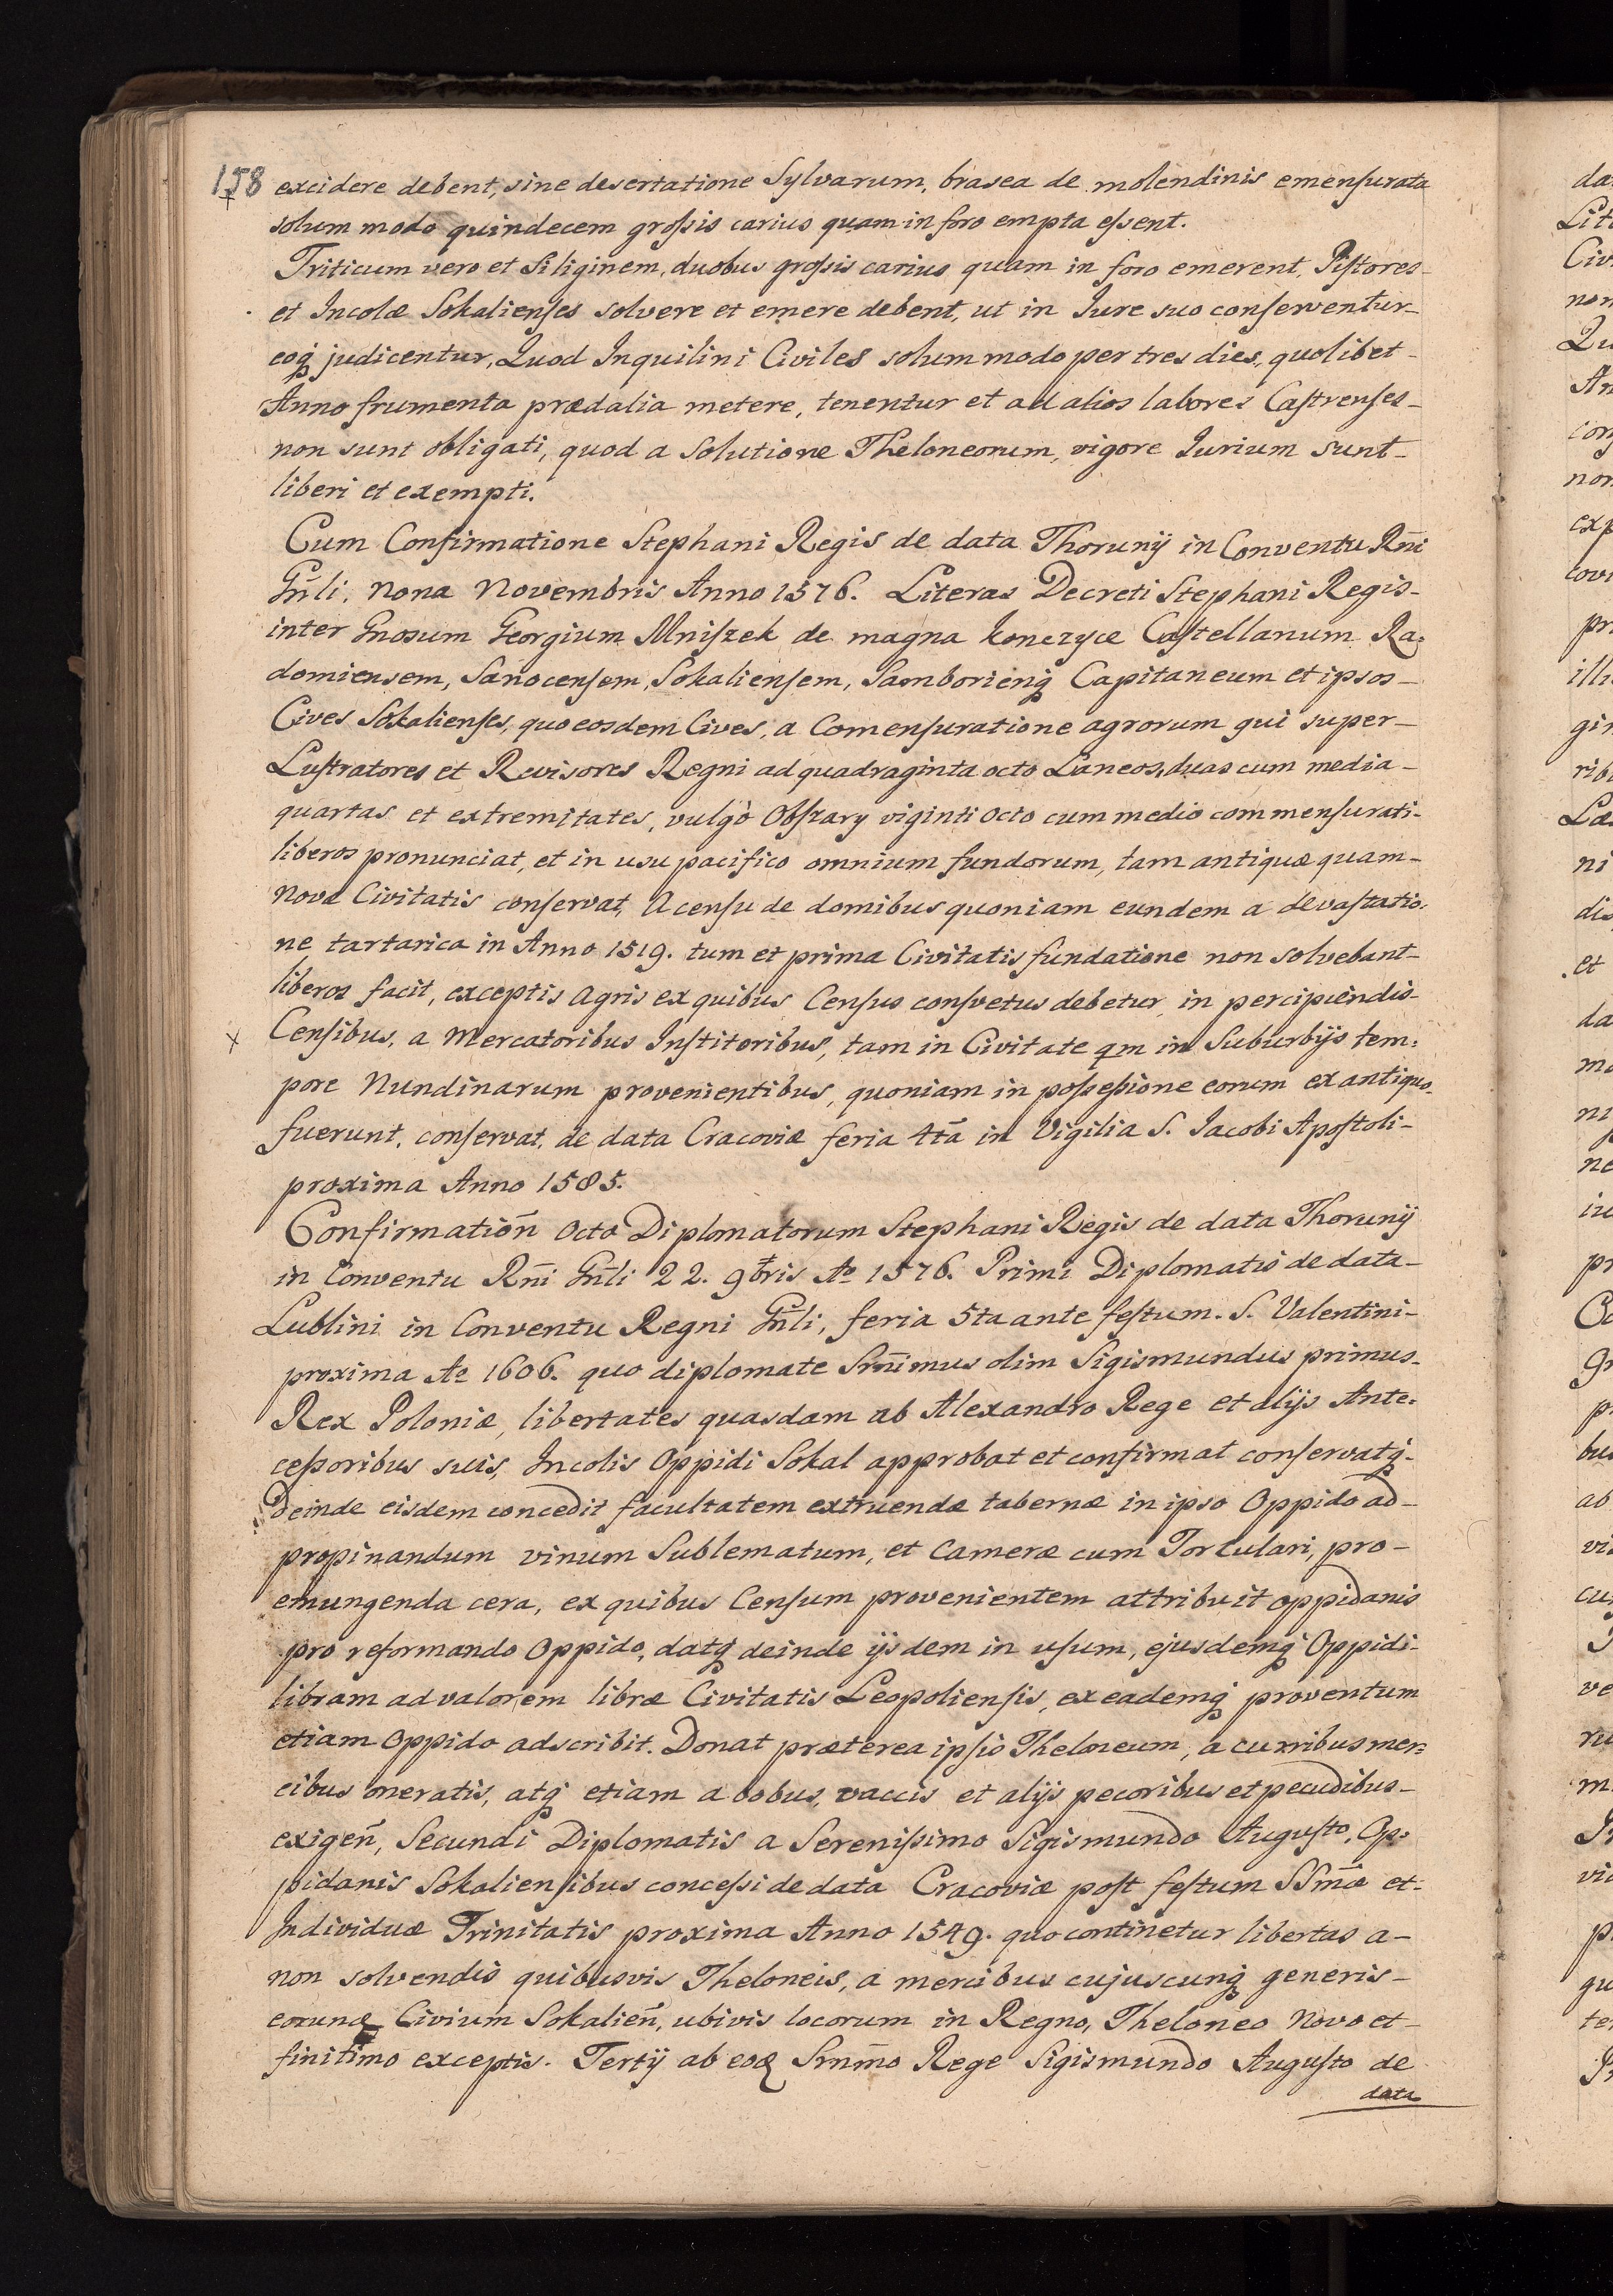 158 excidere debent, sine desertatione Sylvarum, brasea de molendinis emenſurata
solum modo quindecem groſsis carius quam in foro empta eſsent.
Triticum vero et Siliginem, duobus groſsis carius quam in foro emerent, Piſtores_
et Incolæ Sokalienſes solvere et emere debent, ut in Iure suo conſerventur_
eoq̃ judicentur, Quod Inquilini Civiles solummodo per tres dies, quolibet_
Anno frumenta prædalia metere, tenentur et ad alios labores Caſtrenſes_
non sunt obligati, quod a Solutione Theloneorum, vigore Iurium sunt_
liberi et exempti.
Cum Confirmatione Stephani Regis de data Thorunij in Conventu Rñi
Gñli, nona Novembris Anno 1576. Literas Decreti Stephani Regis_
inter Gnosum Georgium Mniſzek de magna Konczyce Caſtellanum Ra:
domiensem, Sanocenſem, Sokalienſem, Samborienq̃ Capitaneum et ipsos_
Cives Sokalienſes, quo eosdem Cives, a Comenſuratione agrorum qui super_
Luſtratores et Revisores Regni ad quadraginta octo Laneos, duas cum media_
quartas et extremitates, vulgò Obſzary viginti octo cum medio commenſurati_
liberos pronunciat, et in usu pacifico omnium fundorum, tam antiquæ quam_
Novæ Civitatis conſervat, A cenſu de domibus quoniam eundem a devaſtatio:
ne tartarica in Anno 1519. tum et prima Civitatis fundatione non solvebant_
liberos facit, exceptis Agris ex quibus Cenſus conſvetus debetur, in percipiendis_
x Cenſibus, a Mercatoribus Inſtitoribus, tam in Civitate qm in Suburbijs tem:
pore Nundinarum provenientibus, quoniam in poſseſsione eorum ex antiquo_
fuerunt, conſervat, de data Cracoviæ feria 4tã in Vigilia S. Jacobi Apoſtoli_
proxima Anno 1585.
Confirmatioñ Octo Diplomatorum Stephani Regis de data Thorunij
in Conventu Rñi Gñli 22. 9bris Ao 1576. Primi Diplomatis de data_
Lublini in Conventu Regni Gñli, feria 5ta ante feſtum. S. Valentini_
proxima Ao 1606. quo diplomate Srñimus olim Sigismundus primus_
Rex Poloniæ, libertates quasdam ab Alexandro Rege et alijs Ante:
ceſsoribus suis, Incolis Oppidi Sokal approbat et confirmat conſervatq̃_
deinde eisdem concedit facultatem extruendæ tabernæ in ipso Oppido ad_
propinandum vinum Sublematum, et Cameræ cum Torculari, pro_
emungenda cera, ex quibus Cenſum provenientem attribuit oppidanis
pro reformando Oppido, datq̃ deinde ijsdem in uſum, ejusdemq̃ Oppidi_
libram ad valorem libræ Civitatis Leopolienſis, ex eademq̃ proventum
etiam Oppido adscribit. Donat præterea ipſis Theloneum, a curribus mer:
cibus oneratis, atq̃ etiam a bobus, vaccis et alijs pecoribus et pecudibus_
exigeñ, Secundi Diplomatis a Sereniſsimo Sigismundo Auguſto, Op:
pidanis Sokalienſibus conceſsi de data Cracoviæ poſt feſtum SSmæ et_
Individuæ Trinitatis proxima Anno 1549. quo continetur libertas a_
non solvendis quibusvis Theloneis, a mercibus cujuscunq̃ generis_
eorunđ Civium Sokalieñ, ubivis locorum in Regno, Theloneo Novo et_
finitimo exceptis. Tertij ab eođ Srnm̃o Rege Sigismundo Auguſto de
data